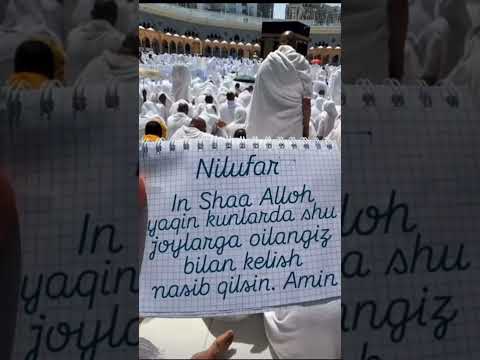 Nilufar
In Shaa Alloh
yaqin kunlarda shu
joylarga oilangiz
bilan kelish
nasib qilsin. Amin